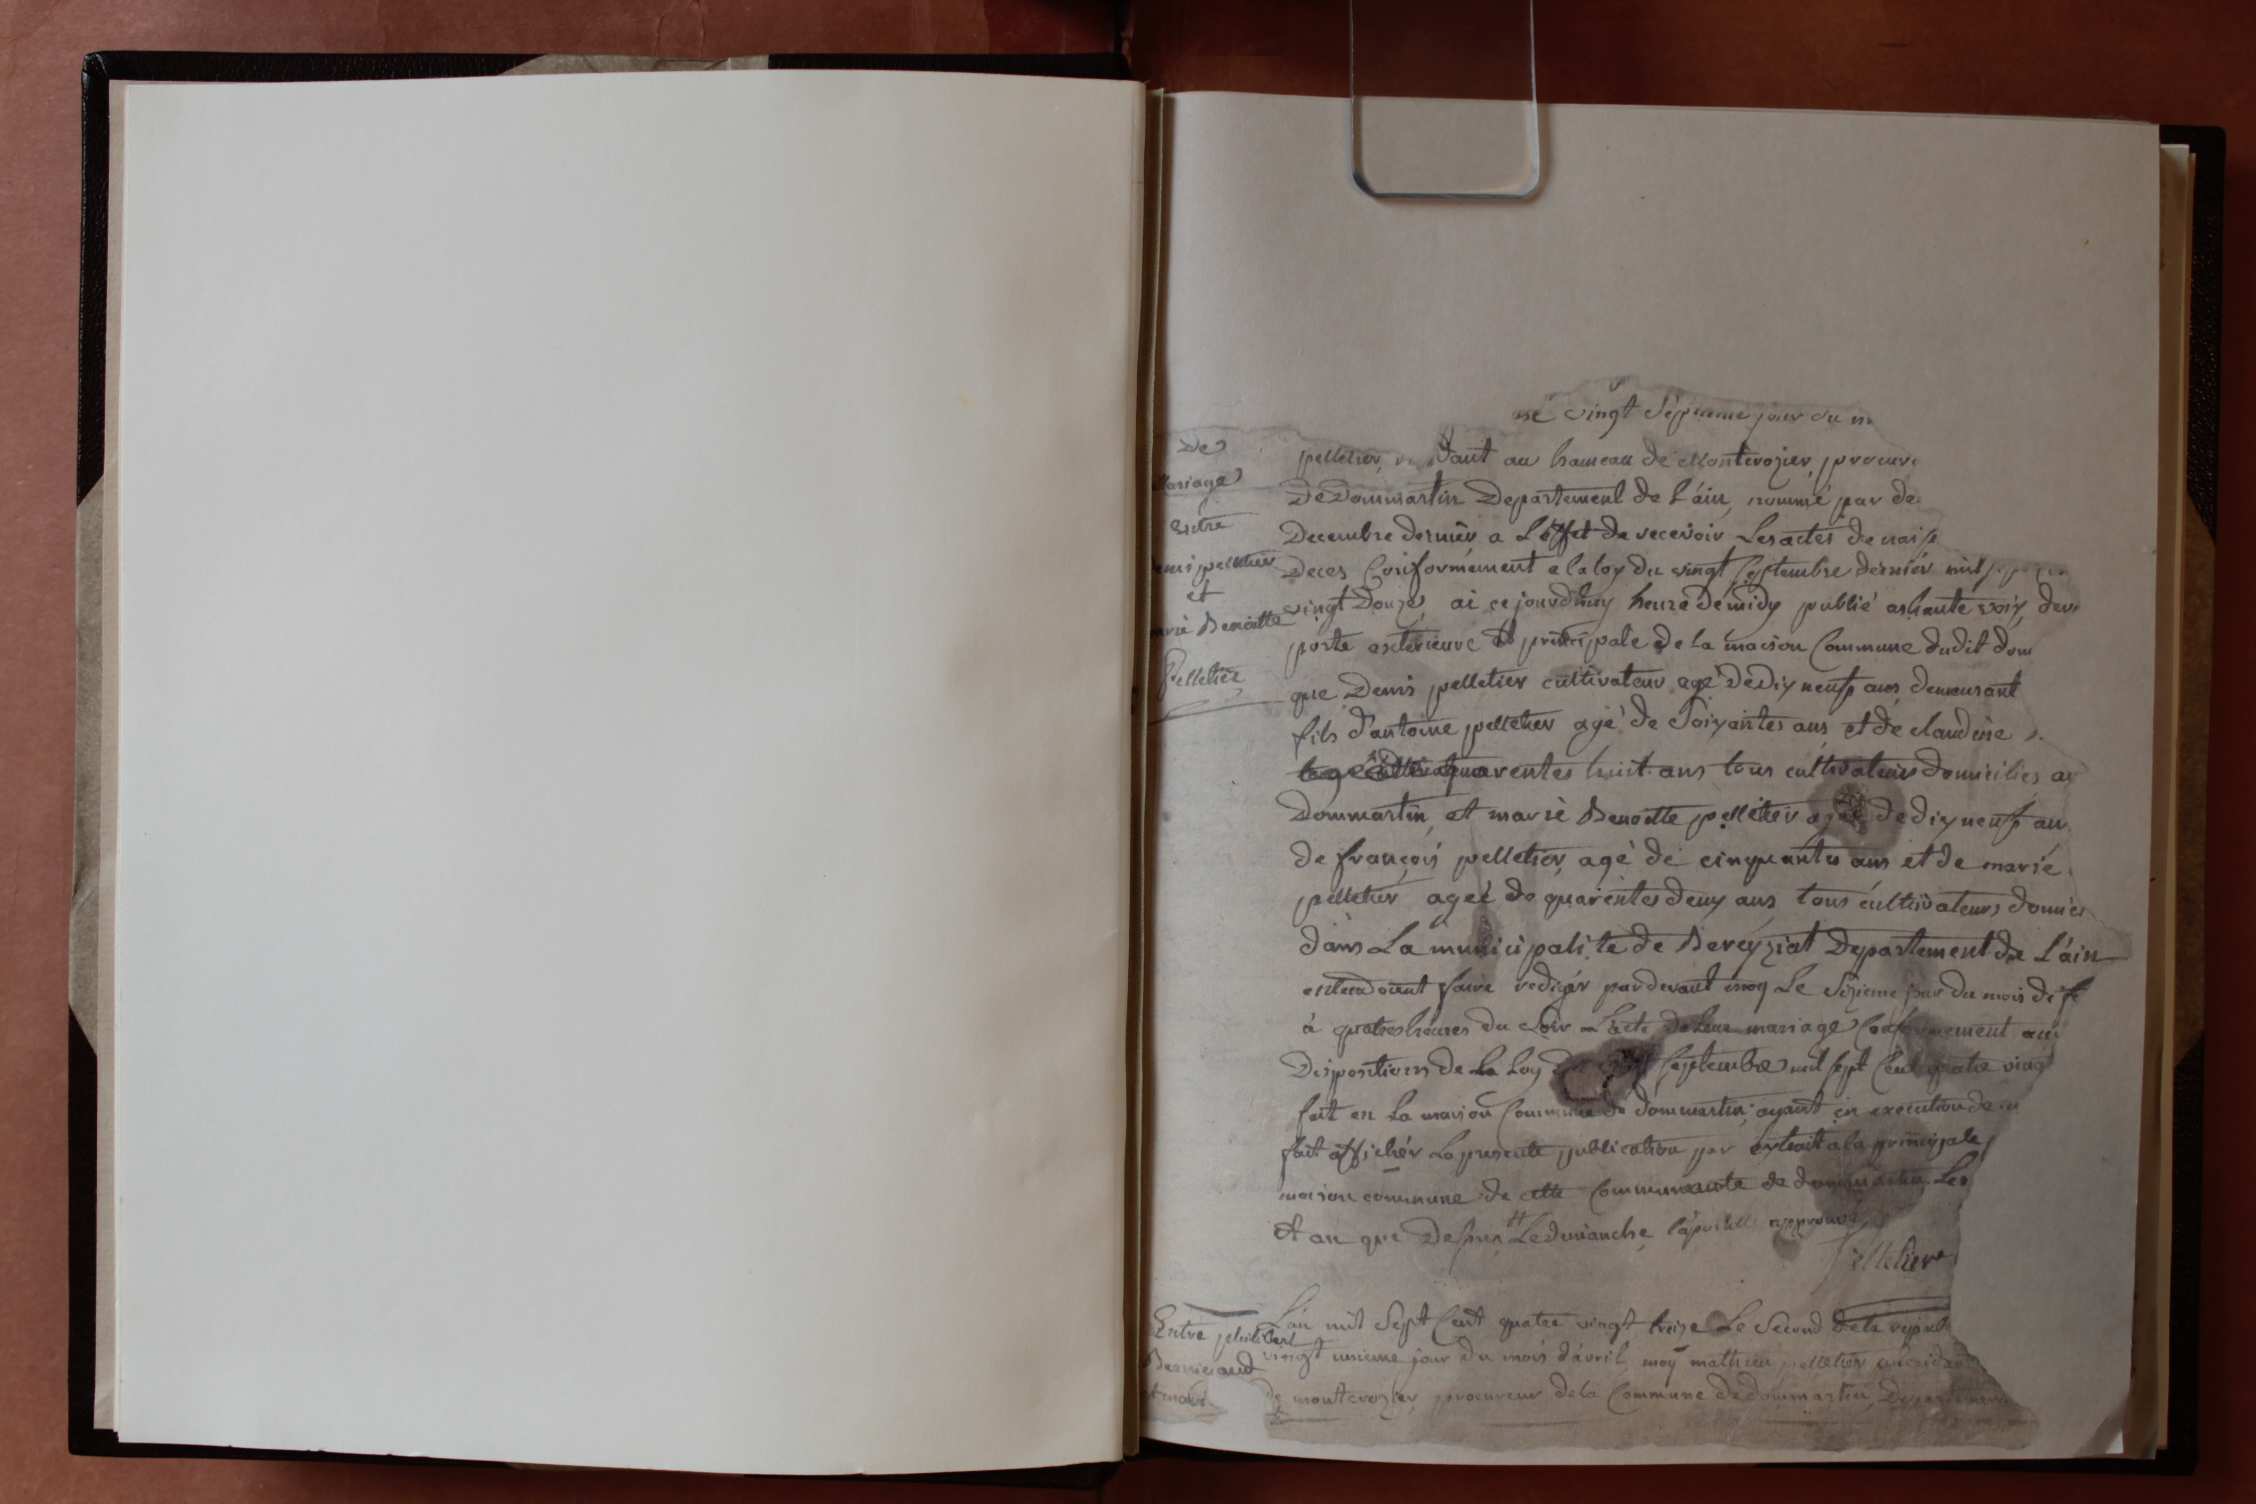 De
Mariage
Entre
Denis pelletier
et
marie Benoitte
Pelletier
vingt septieme jour du
pelletier, dant au hameau de Montcrozier, procure
De Dommartin Departement de L'ain, nommé par de
Decembre dernier a L'effet de recevoir Les actes de naiss
Deces Conformément a la loy du vingt Septembre dernier mil sept
vingt Douze, ai ce jourd'huy heure de midy publié a haute voix, dev
porte exterieure et principale de la maison Commune dudit dom
que Denis pelletier cultivateur agé de Dix neuf ans demeurant
fils d'antoine pelletier agé de Soixantes ans et de claudine
quarentes huit ans tous cultivateurs domiciliés a
Dommartin, et marie Benoitte pelletier agée de dix neuf an
de françois pelletier, agé de cinquantes ans et de marie
pelletier agée de quarentes deux ans tous cultivateurs domici
dans La municipalité de Bereyziat Departement de L'ain
entendoient faire rediger pardevant moy Le Sizieme jour du mois de fe
à quatres heures du Soir L'acte de Leur mariage Conformement aux
Dispositions de La Loy Septembre mil sept Cent quatre ving
fait en La maison Commune de dommartin, ayant en execution de
fait afficher La presente publication par extrait a la principale
maison commune de cette Communauté de dommartin Les
et an que Dessus, Le dimanche, approuvé
Pelletier
Entre philibert
et marie
L'an mil Sept Cent quatre vingt treize Le Second de la republ
vingt unieme jour du mois d'avril, moy mathieu pelletier
de montcrozier, procureur de la Commune de dommartin, Departement